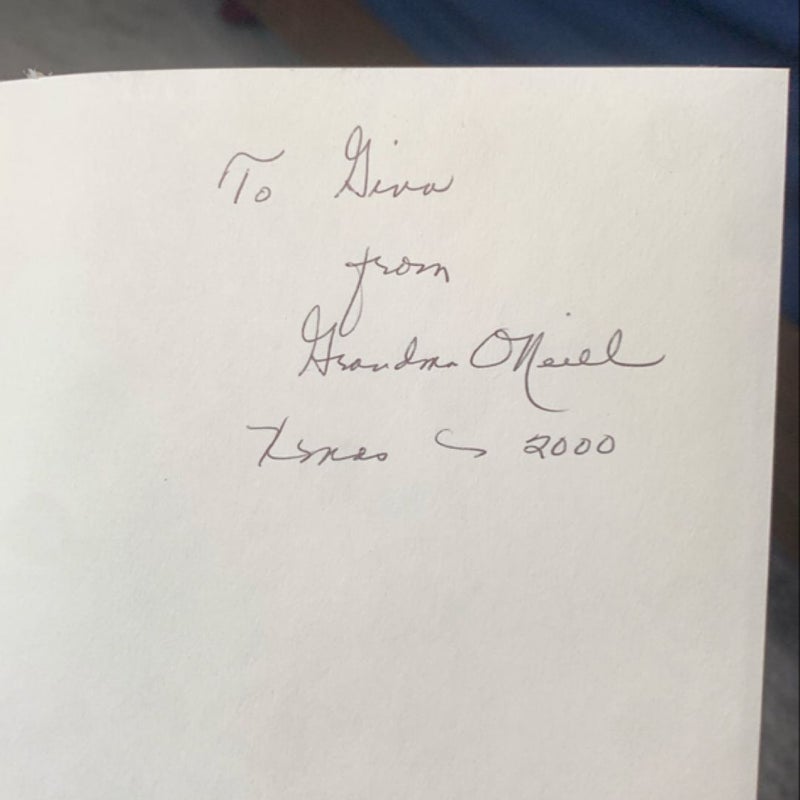 To Gina
from
Grandma O'Neill
Xmas ~ 2000